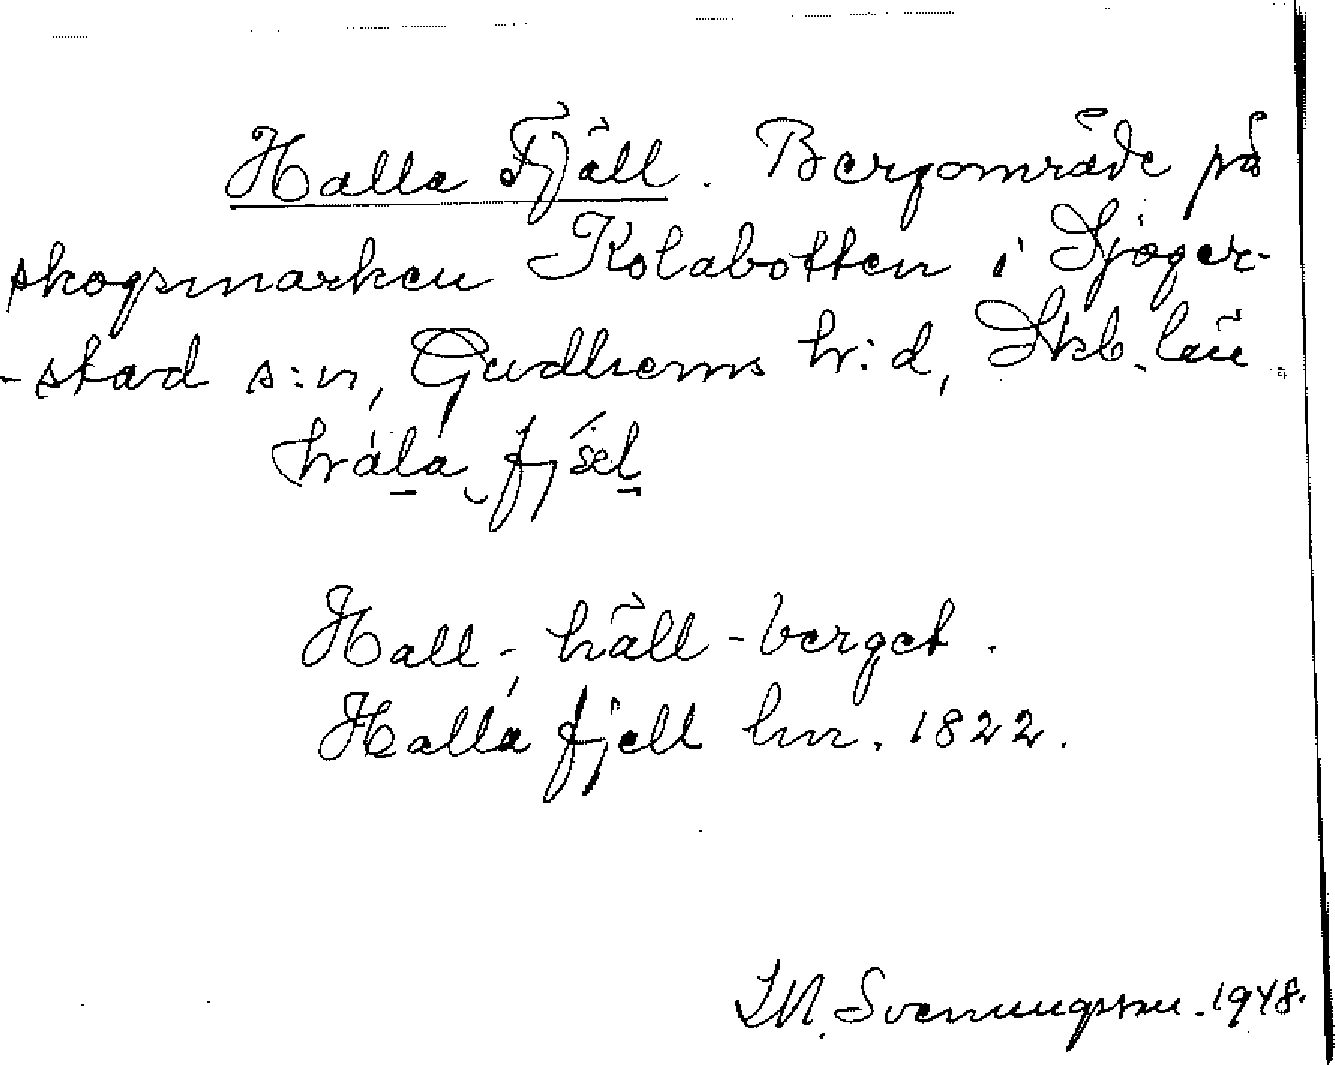 Halla Fjäll. Bergområde på
skogsmarken Kolabotten i Sjoger-
-stad s:n, Gudhems h:d, Skb. län.
hála fjæ̂l
Hall-, häll-berget.
Halla fjell hm. 1822.
Svenungsson. 1948.